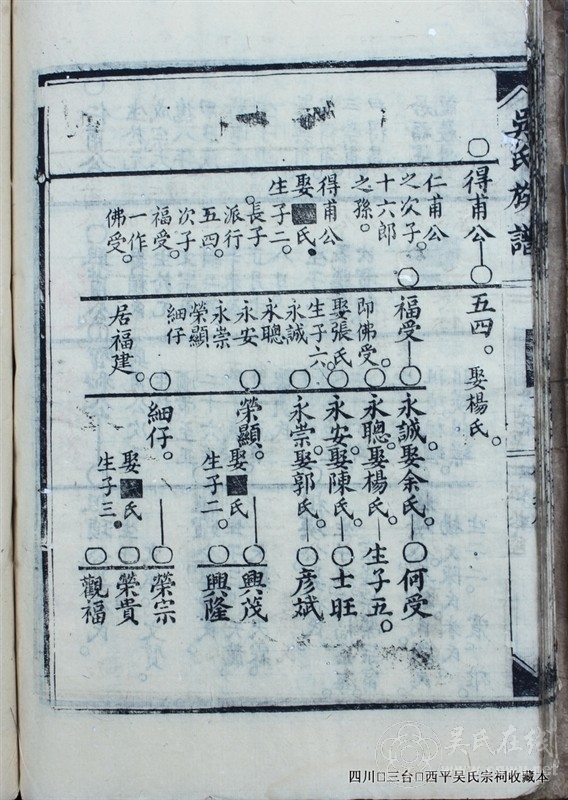 吳氏族譜
○得甫公—○五四。娶楊氏。
仁甫公
之次子。
十六郎
之孫。
得甫公
娶■氏。
生子二。
長子
派行
五四。
次子
福受。
一作
佛受。
○福受—○永誠。娶余氏。—○何受
即佛受。
娶張氏
生子六。
永誠
永聰
永安
永崇
榮顯
細仔
居福建。
○永聰。娶楊氏—生子五。
○永安。娶陳氏。—○士旺
○永崇。娶郭氏。—○彥斌
○榮顯。娶■氏—○興茂
生子二。○興隆
○細仔。—○榮宗
娶■氏
生子三。
○榮貴
○觀福
吴氏在线
四川□三台□西平吴氏宗祠收藏本